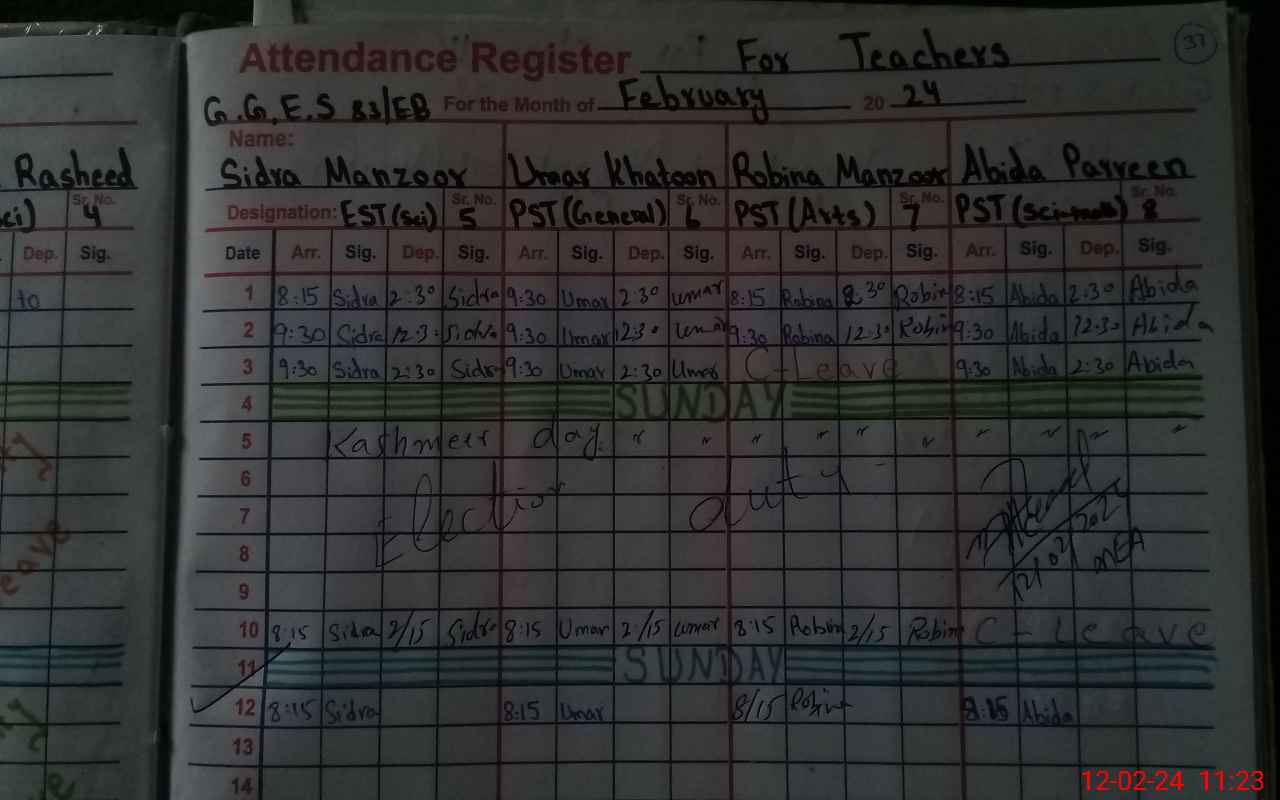 Attendance Register For Teachers 37
G.G.E.S 83/EB For the Month of February 20 24
Name:
Rasheed Sidra Manzoor Umar Khatoon Robina Manzoor Abida Parveen
Sr. No. 4 Designation: EST (sci) Sr. No. 5 PST (General) Sr. No. 6 PST (Arts) Sr. No. 7 PST Sr. No. 8
Dep. Sig. Date Arr. Sig. Dep. Sig. Arr. Sig. Dep. Sig. Arr. Sig. Dep. Sig. Arr. Sig. Dep. Sig.
to 1 8:15 Sidra 2:30 Sidra 9:30 Umar 2:30 Umar 8:15 Robina 2 30 Robin 8:15 Abida 2:30 Abida
2 9:30 Sidra 12:3 Sidra 9:30 Umar 12:30 Umar 9:30 Robina 12:30 Robin 9:30 Abida 12:30 Abida
3 9:30 Sidra 2:30 Sidra 9:30 Umar 2:30 Umar C-Leave 9:30 Abida 2:30 Abida
4 SUNDAY
5 Kashmeer day. " " " " " " " " " "
6
7 Election duty
8
9
10 8:15 Sidra 2/15 Sidra 8:15 Umar 2/15 Umar 8:15 Robina 2/15 Robin C-Leave
11 SUNDAY
12 8:15 Sidra 8:15 Umar 8/15 Robina 8:15 Abida
13
14
12-02-24 11:23